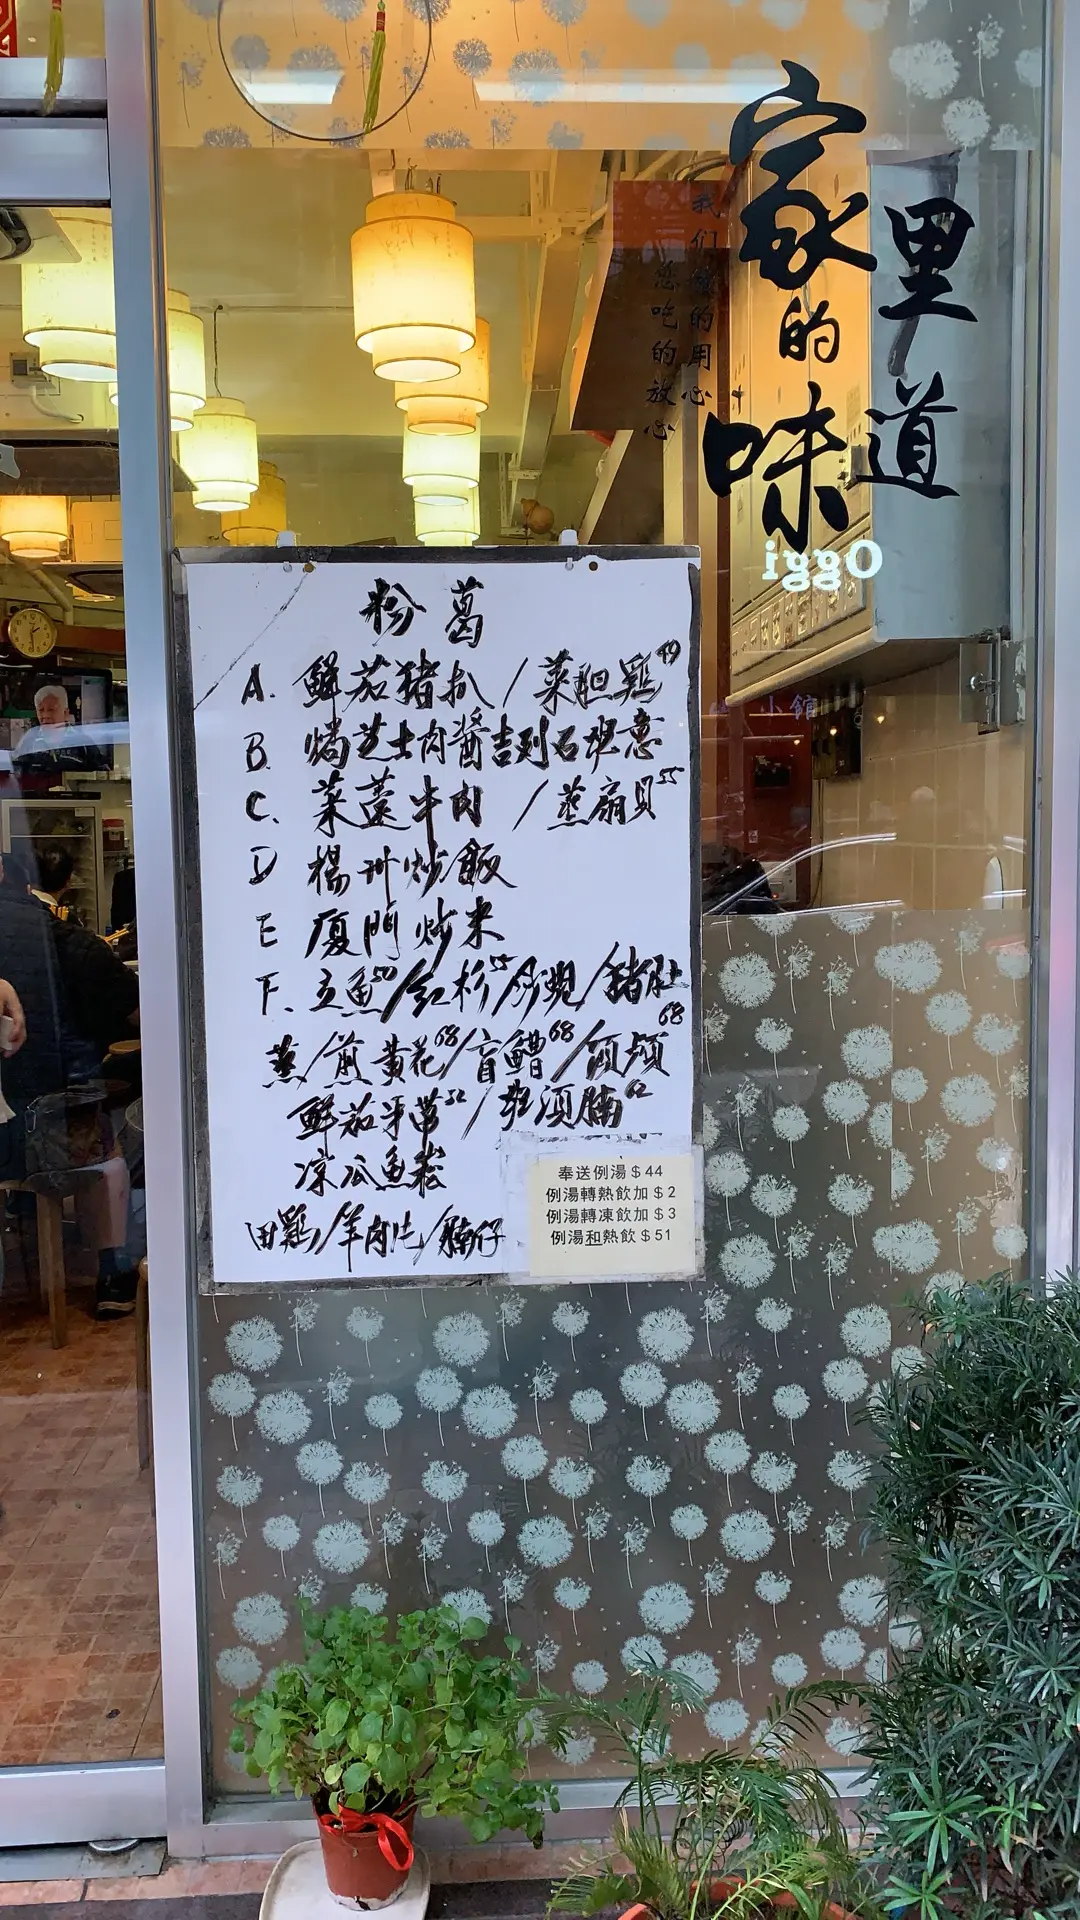 家里
的
味道
我们做的用心
您吃的放心
iggO
小館
粉葛
A. 鮮茄豬扒 / 菜胆鷄 49
B 焗芝士肉醬吉列石班意
C. 菜薳牛肉 / 蒸扇貝 55
D 楊州炒飯
E 廈門炒米
F. 立魚 50 / 红杉 55 / 豬肚
蒸 / 煎黃花 68 / 盲鰽 68 / 68
鮮茄 52 / 62
凉瓜魚崧
田鷄 / 羊肉片 / 腩仔
奉送例湯 $ 44
例湯轉熱飲加 $ 2
例湯轉凍飲加 $ 3
例湯和熱飲 $ 51